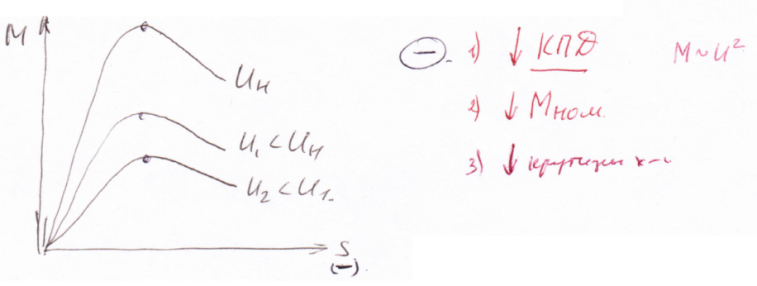 M
Uн
U₁ < Uн
U₂ < U₁.
S
(−).
(−). 1) ↓ КПД
M ~ U²
2) ↓ Mном.
3) ↓ крутизн х-и